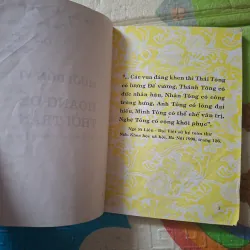 "... Các vua đáng khen thì Thái Tông
có lượng Đế vương, Thánh Tông có
đức nhân hậu, Nhân Tông có công
trung hưng, Anh Tông có lòng đại
hiếu, Minh Tông có thể chế văn trị,
Nghệ Tông có công khôi phục".
Ngô Sĩ Liên - Đại Việt sử ký toàn thư
Nxb. Khoa học xã hội, Hà Nội 1998, trang 186.